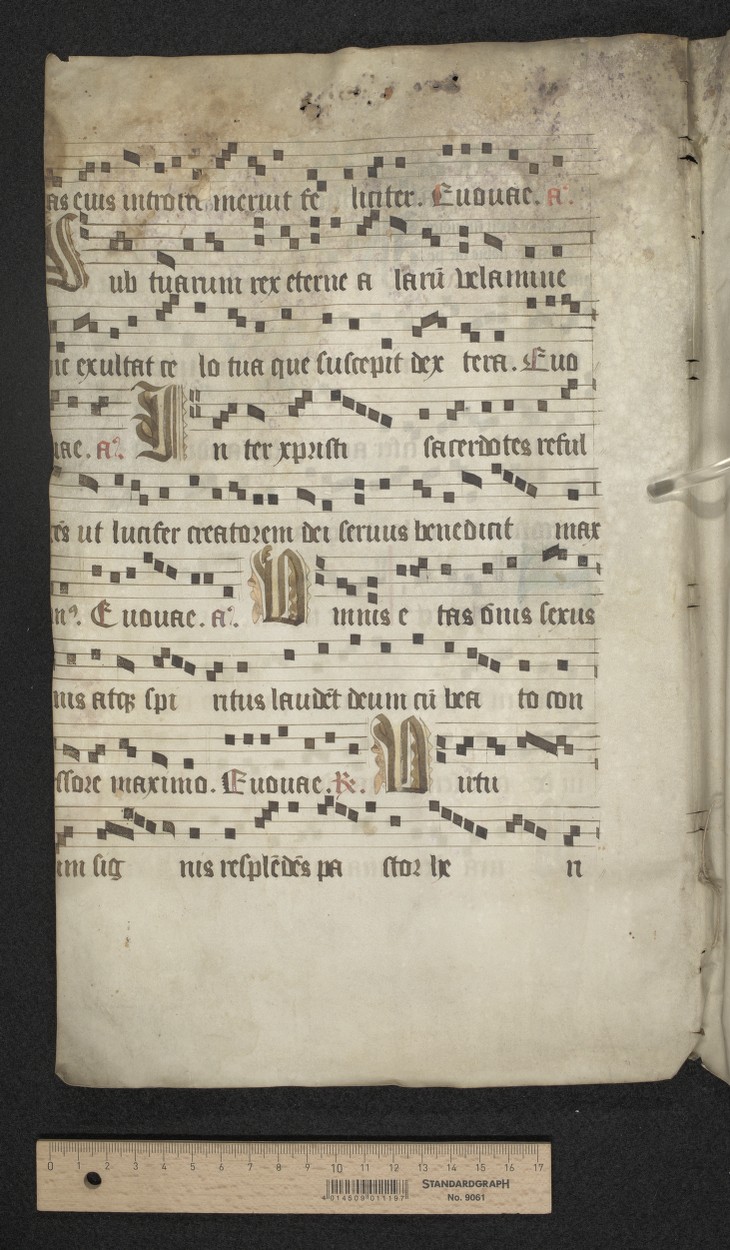 as eius introire meruit fe liciter. Euouae. a.
Sub tuarum rex eterne a larū velamine
nc exultat ce lo tua que suscepit dex tera. Euo
uae. a. In ter xpristi sacerdotes reful
ut lucifer creatorem dei seruus benedicit max
Euouae. a. Omnis e tas ōnis sexus
nis atqꝫ spi ritus laudēt deum cū bea to con
ssore maximo. Euouae. ℟. Uirtu
im sig nis resplēdēs pa stor he n
0 1 2 3 4 5 6 7 8 9 10 11 12 13 14 15 16 17
4 014509 011197
STANDARDGRAPH
No. 9061